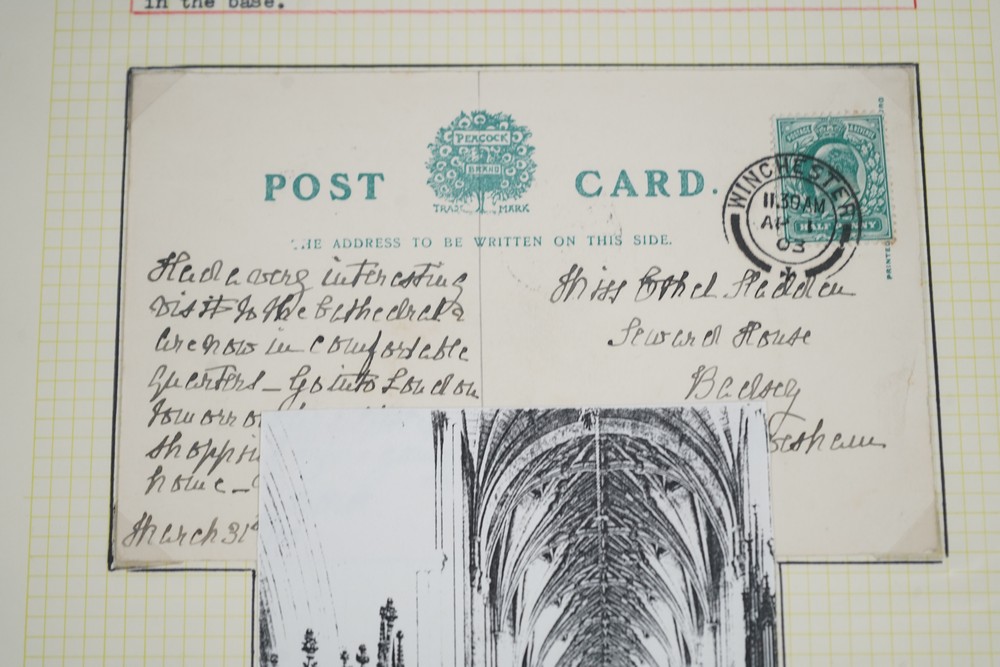 in the base.
POST CARD.
PEACOCK
BRAND
TRADE MARK
THE ADDRESS TO BE WRITTEN ON THIS SIDE.
WINCHESTER
11.30AM
AP 1
03
POSTAGE REVENUE
HALF PENNY
PRINTED
Had a very interesting
visit to the Cathedral &
are now in comfortable
quarters - Go into London
tomorro
shoppin
home -
March 31st
Miss Ethel Sladden
Seward House
Badsey
vesham